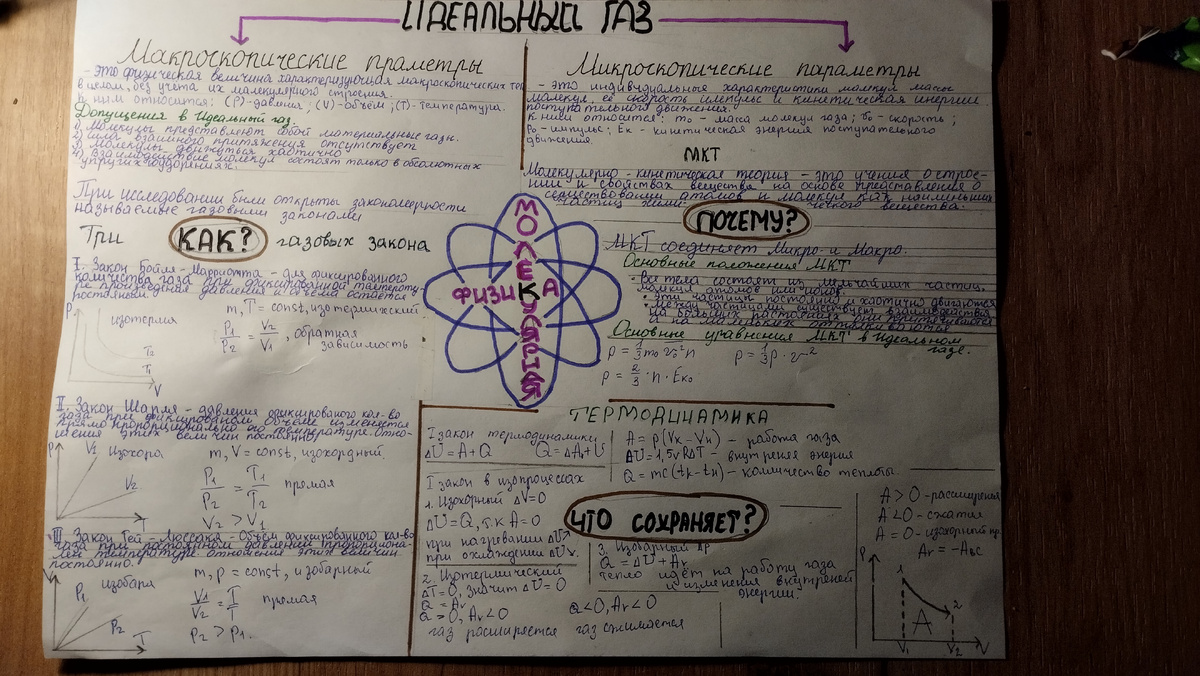 ИДЕАЛЬНЫЙ ГАЗ
Макроскопические праметры
- это физическая величина характеризующая макроскопических тел
в целом, без учета их молекулярного строения.
К ним относится: (P)-давлиние; (V)-объём; (T)-температура.
Допущения в Идеальный газ.
1) Молекулы представляют собой материальные газы.
2) Сила взаимного притяжения отсутствует
3) Молекулы движуться хаотично
4) Взаимодействие молекул состоят только в обсолютных
упругих соударениях.
При исследовании были открыты закономерности
называемые газовыми законами
Три КАК? газовых закона
I. Закон Бойля-Мариотта - для фиксированного
количества газа при фиксированной температу-
ре произведения давления и объема остаётся
постоянным.
P
изотерма
T₂
T₁
V
m, T = const, изотермический.
P₁/P₂ = V₂/V₁, обратная
зависимость
II. Закон Шарля - давления фиксированого кол-во
газа при фиксированном объёме изменяется
прямо пропорционально его температуре. Отно-
шения этих величин постоянно.
P
V₁
Изохора
V₂
T
m, V = const, изохордный.
P₁/P₂ = T₁/T₂ прямая
V₂ > V₁
III. Закон Гей-Люссака - Объем фиксированного кол-во
газа при постоянном давлении пропорциона-
лен температуре. отношения этих величин
постоянно.
V
P₁
изобара
P₂
T
m, p = const, изобарный
V₁/V₂ = T/T прямая
P₂ > P₁.
МОЛЕКУЛЯРНАЯ
ФИЗИКА
Микроскопические параметры
- это индивидуальные характеристики молекул массы
молекул, её скорость импульс и кинетическая инергии
поступательного движения.
К ниси относится: m₀ - масса молекул газа; v₀ - скорость;
P₀ - импульс; Eк - кинетическая энергия поступательного
движения.
МКТ
Молекулярно-кинетическая теория - это учения о строе-
нии и свойствах вещества на основе представления о
существовании атомов и молекул как наименьших
частиц химического вещества.
ПОЧЕМУ?
МКТ соединяет Микро- и Макро.
Основные положения МКТ
• Все тела состоят из мельчайших частиц.
молекул атомов или ионов
• эти частицы постоянно и хаотично двигаются
• между частицами существует взаимодействия
на больших растояниях они притягиваются
и на маленьких отталкиваются
Основные уравнения МКТ в идеальном
газе.
p = 1/3 m₀ v₀² n
p = 1/3 ρ · v²
p = 2/3 · n · Eк₀
ТЕРМОДИНАМИКА
I закон термодинамики
ΔU = A + Q Q = ΔA + U
A = p(Vк - Vн) - работа газа
ΔU = 1,5νRΔT - внутреняя энергия
Q = mc(tк - tн) - количество теплоты.
I закон в изопроцессах
1. Изохорный ΔV=0
ΔU=Q, т.к A=0
при нагревании ΔU↗
при охлаждении ΔU↘.
2. Изотермический
ΔT=0, значит ΔU=0
Q = Aг
Q > 0, Aг < 0
газ расширяется
Q < 0, Aг < 0
газ сжимается
ЧТО СОХРАНЯЕТ?
3. Изобарный Δp
Q = ΔU + Aг
тепло идёт на работу газа
и изменения внутреней
энергии.
A > 0 - расширения
A < 0 - сжатия
A = 0 - изохорный пр.
Aг = -Aвс
P
1
2
A
V₁
V₂
V